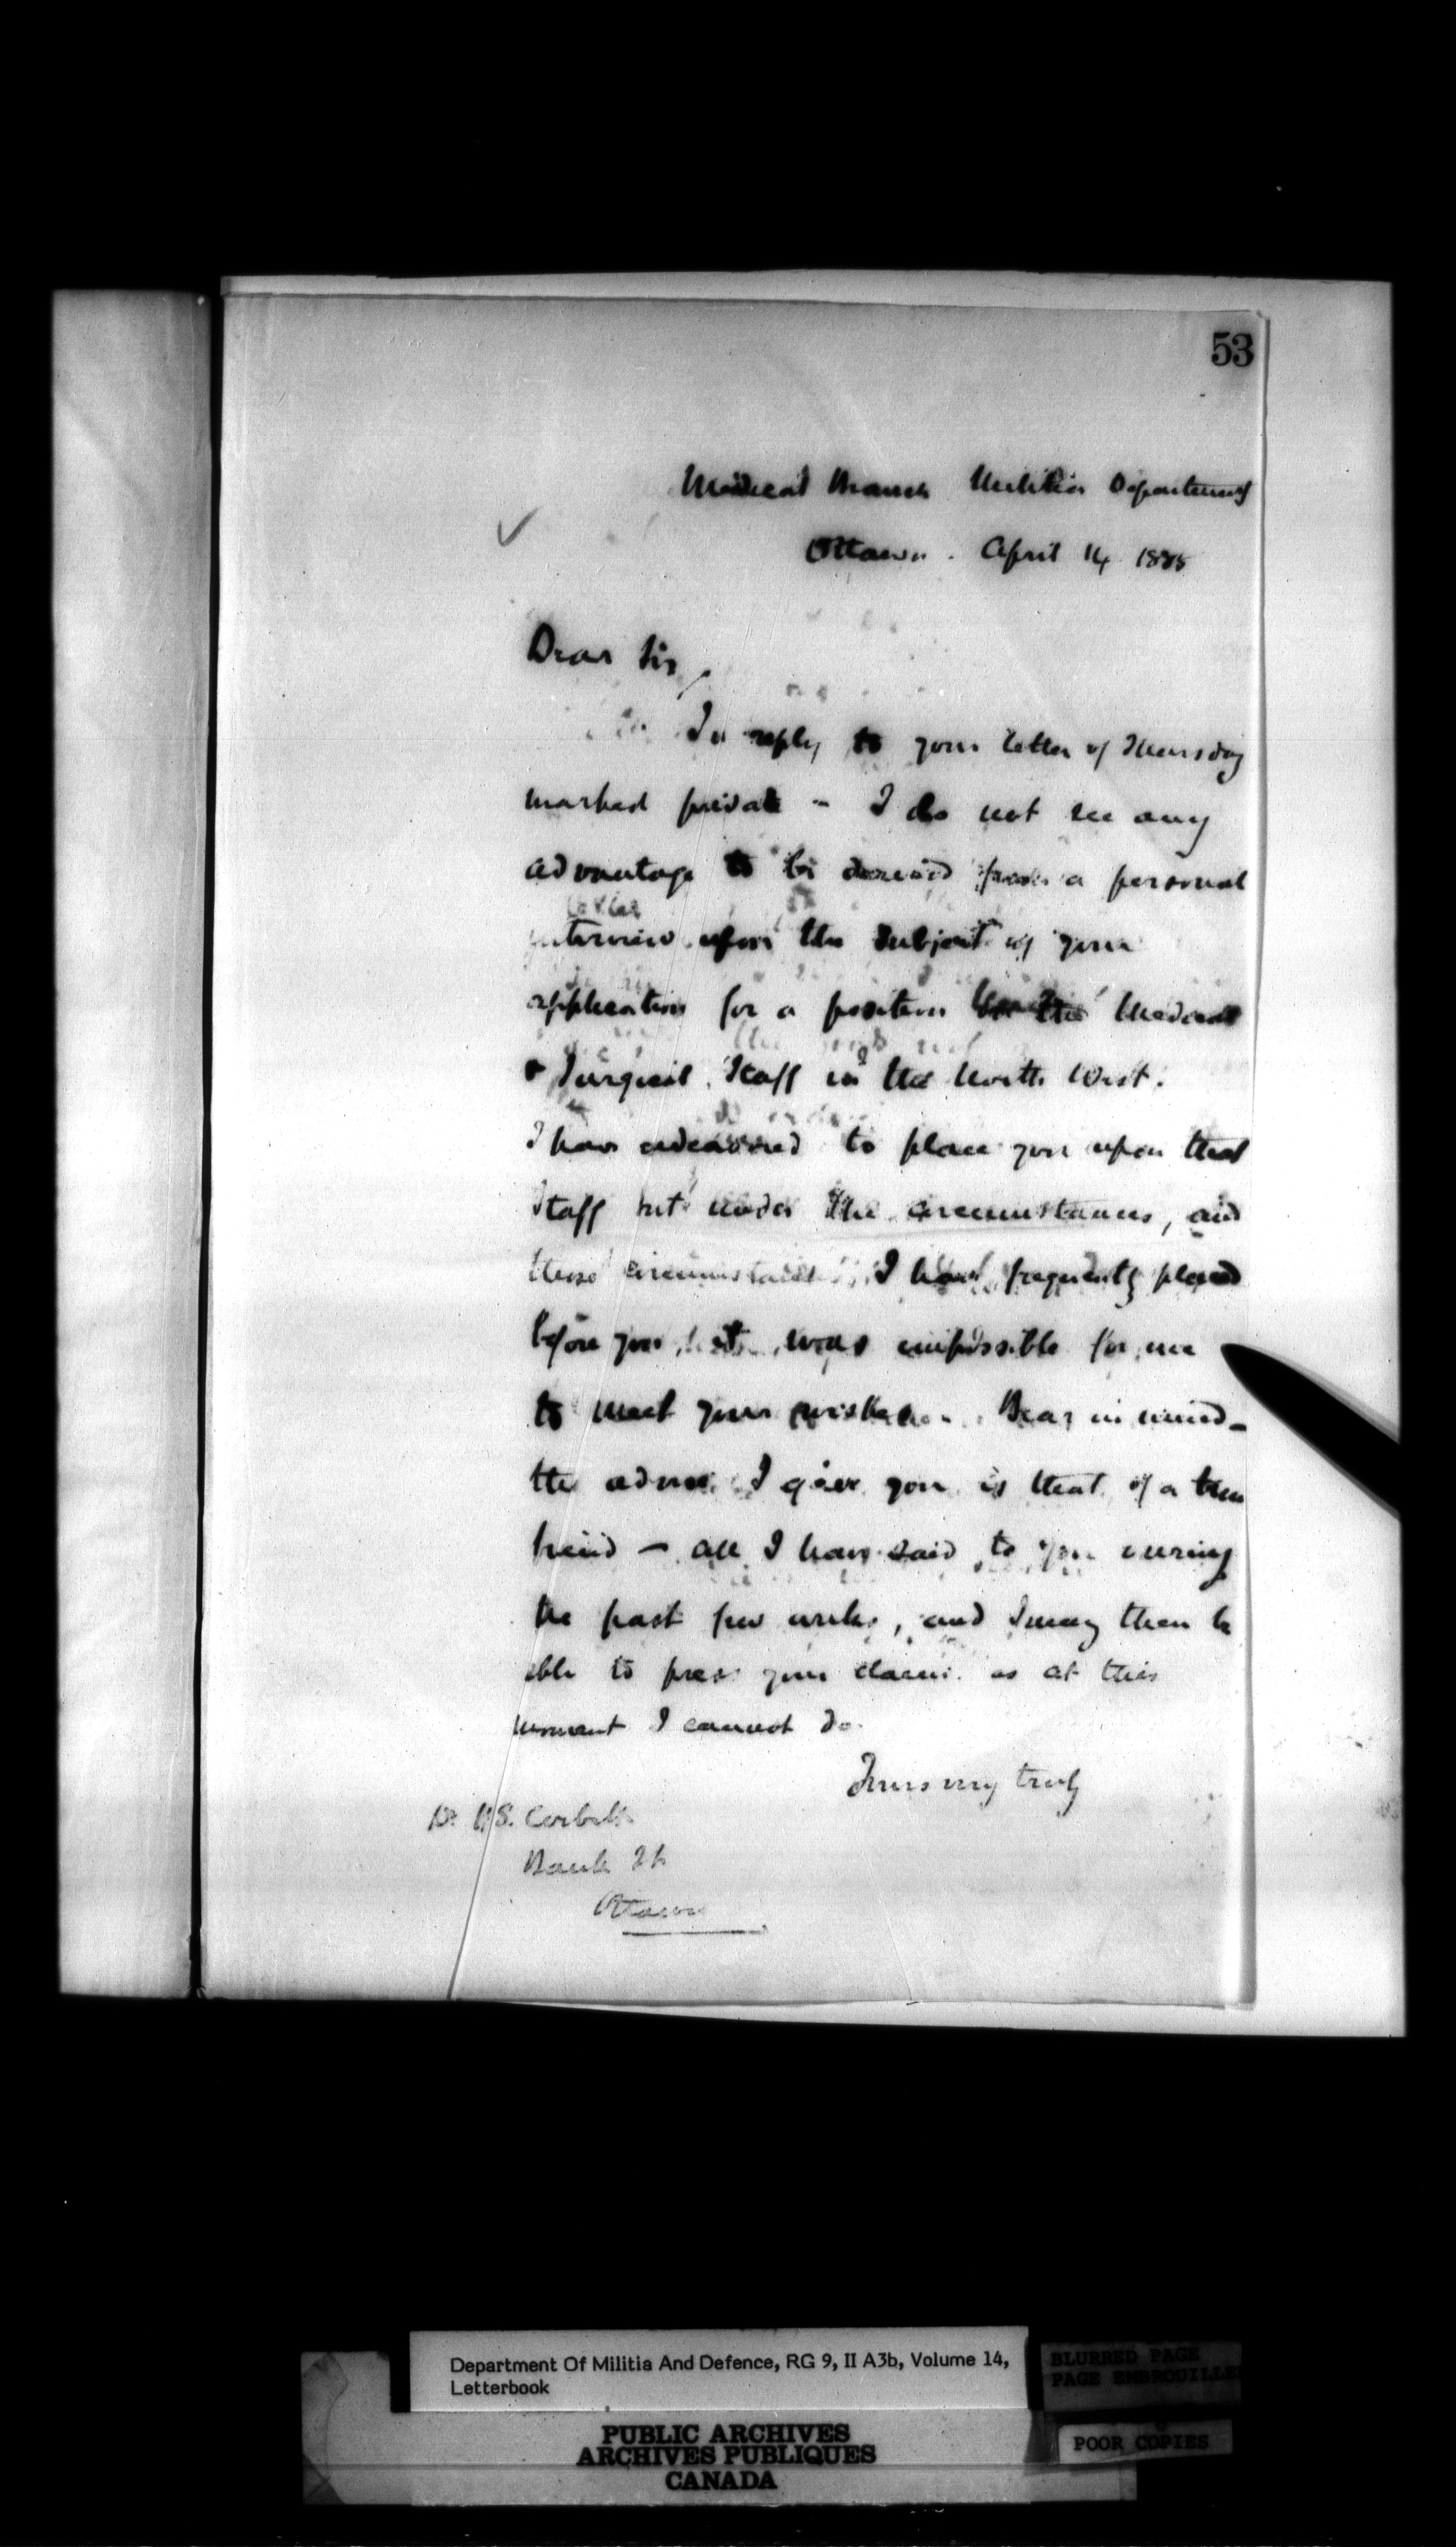 53
Medical Branch Militia Department
Ottawa. April 14 1885
Dear Sir,
In reply to your letter of Thursday
marked private - I do not see any
advantage to be derived from a personal
interview upon the subject of your
application for a position on the Medical
& Surgical Staff in the North West.
I have endeavored to place you upon that
Staff but under the circumstances, and
these circumstances I have frequently placed
before you, it was impossible for me
to meet your wishes. Bear in mind -
the advice I give you is that of a true
friend - all I have said to you during
the past few weeks, and I may then be
able to press your claim as at this
moment I cannot do.
Yours very truly
Dr. H.S. Corbett
Bank St
Ottawa
Department Of Militia And Defence, RG 9, II A3b, Volume 14,
Letterbook
BLURRED PAGE
PAGE EMBROUILLE
POOR COPIES
PUBLIC ARCHIVES
ARCHIVES PUBLIQUES
CANADA